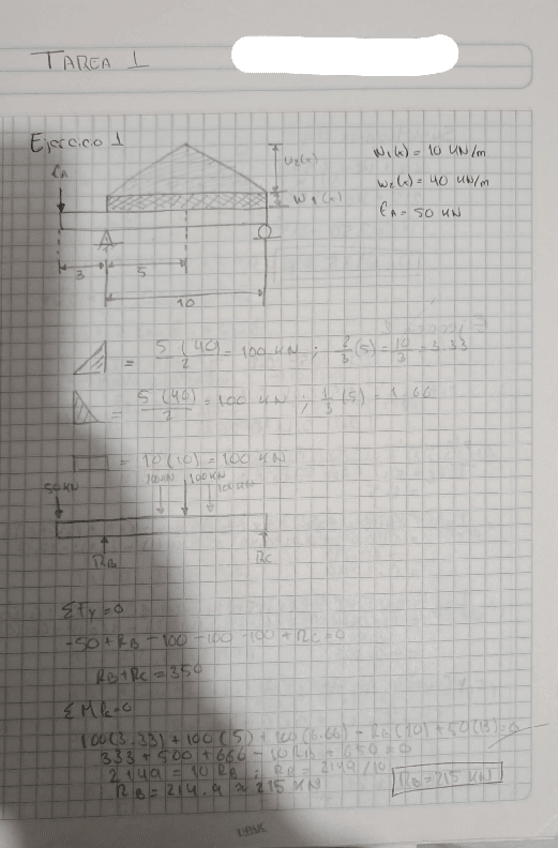 TAREA 1
Ejercicio 1
W₁(x) = 10 KN/m
W₂(x) = 40 KN/m
FA = 50 KN
FA
W₂(x)
W₁(x)
3
5
10
= 5 (40)/2 = 100 KN ; 2/3 (5) = 10/3 = 3.33
= 5 (40)/2 = 100 KN ; 1/3 (5) = 1.66
= 10(10) = 100 KN
50KN
100KN
100KN
100KN
RB
RC
ΣFy=0
-50+RB-100-100-100+RC=0
RB+RC=350
ΣMC=0
100(3.33)+100(5)+100(6.66)-RB(10)+50(13)=0
333+500+666-10RB+650=0
2149=10RB; RB=2149/10
RB=214.9≈215 KN
RB=215 KN